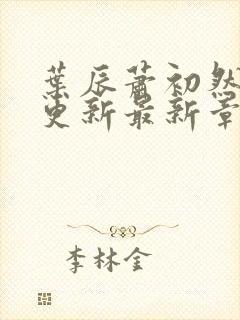 葉辰蕭初然
更新最新章
李林金